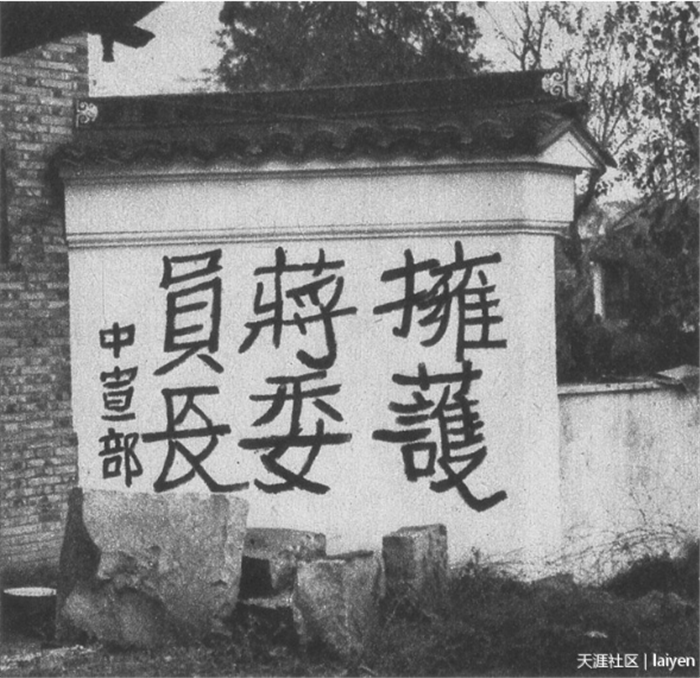 擁護
蔣委
員長
中宣部
天涯社区 | laiyen